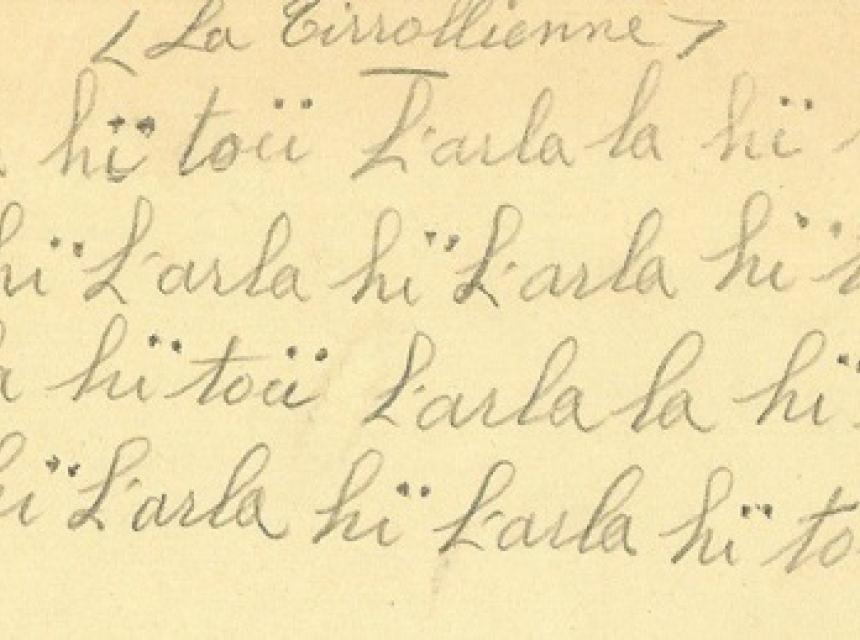 < La Tirrollienne >
hï toïi L'arla la hï
hï L'arla hï L'arla hï
hï toïi L'arla la hï
hï L'arla hï L'arla hï to